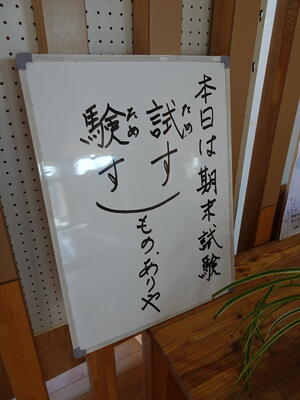 本日は期末試験
試す
ため
験す
ため
もの、ありや